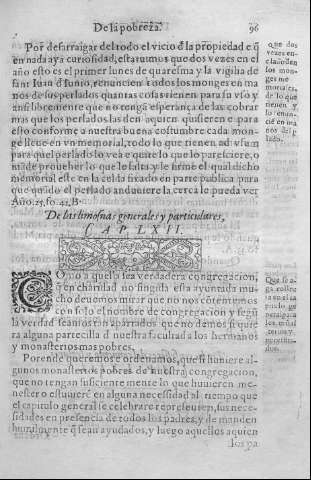 De la pobreza. 96
Por desarraigar del todo el vicio đ la propiedad e q̃
en nada aya curiosidad, estatuimos que dos vezes en el
año esto es el primer lunes de quaresma y la vigilia de
sant Iuan đ Iunio, renuncien todos los monges en ma
nos de sus perlados quantas cosas tienen para su vso y
tan libremente que no tengã esperança de las cobrar
mas que los perlados las den a quien quisieren e para
esto conforme a nuestra buena costumbre cada mon-
ge lleue en vn memorial, todo lo que tienen ad vsum
para quel perlado lo vea e quite lo que lo paresciere, o
mãde proueher lo que le falta y le firme el qual dicho
memorial este en la celda fixado en parte publica para
que quãdo el perlado anduuiere la cerca le pueda ver
Año. 25. fo. 42, B.
De las limosnas generales y particulares,
CAP. LXII.
COmo a quella sea verdadera congregacion,
q̃ en charidad no fingida esta ayuntada mu
cho deuemos mirar que no nos cõtentemos
con solo el nombre de congregacion y segũ
la verdad seamos tan apartados que no demos si quie
ra alguna partecilla đ nuestra facultad a los hermanos
y monasterios mas pobres,
Porende queremos e ordenamos, que si huuiere al-
gunos monasterios pobres de nuestra congregacion,
que no tengan sufficiente mente lo que huuieren me-
nester o estuuierẽ en alguna necessidad al tiempo que
el capitulo general se celebrare representen, sus nece-
sidades en presencia de todos los padres, y demanden
humilmente q̃ sean ayudados, y luego aquellos aquien
los pa
q̃ue dos
vezes en
los
monges